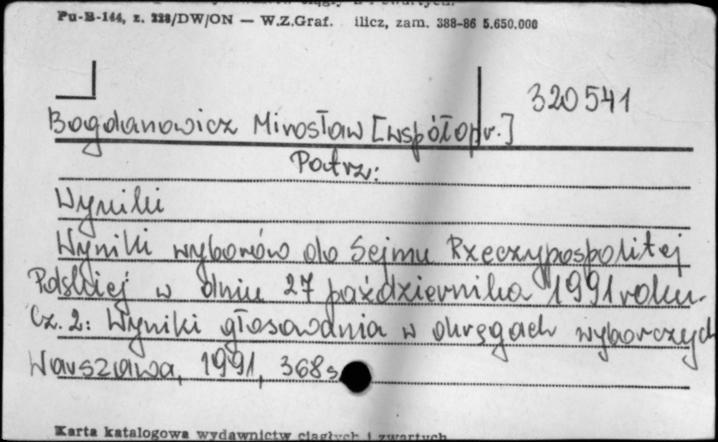 Pu-B-144, z. 228/DW/ON — W.Z.Graf. ilicz, zam. 388-86 5.650.000
320541
Bogdanowicz Mirosław [współopr.]
Patrz:
Wyniki
Wyniki wyborów do Sejmu Rzeczypospolitej
Polskiej w dniu 27 października 1991 roku.
Cz. 2: Wyniki głosowania w okręgach wyborczych
Warszawa, 1991, 368s.
Karta katalogowa wydawnictw ciągłych i zwartych